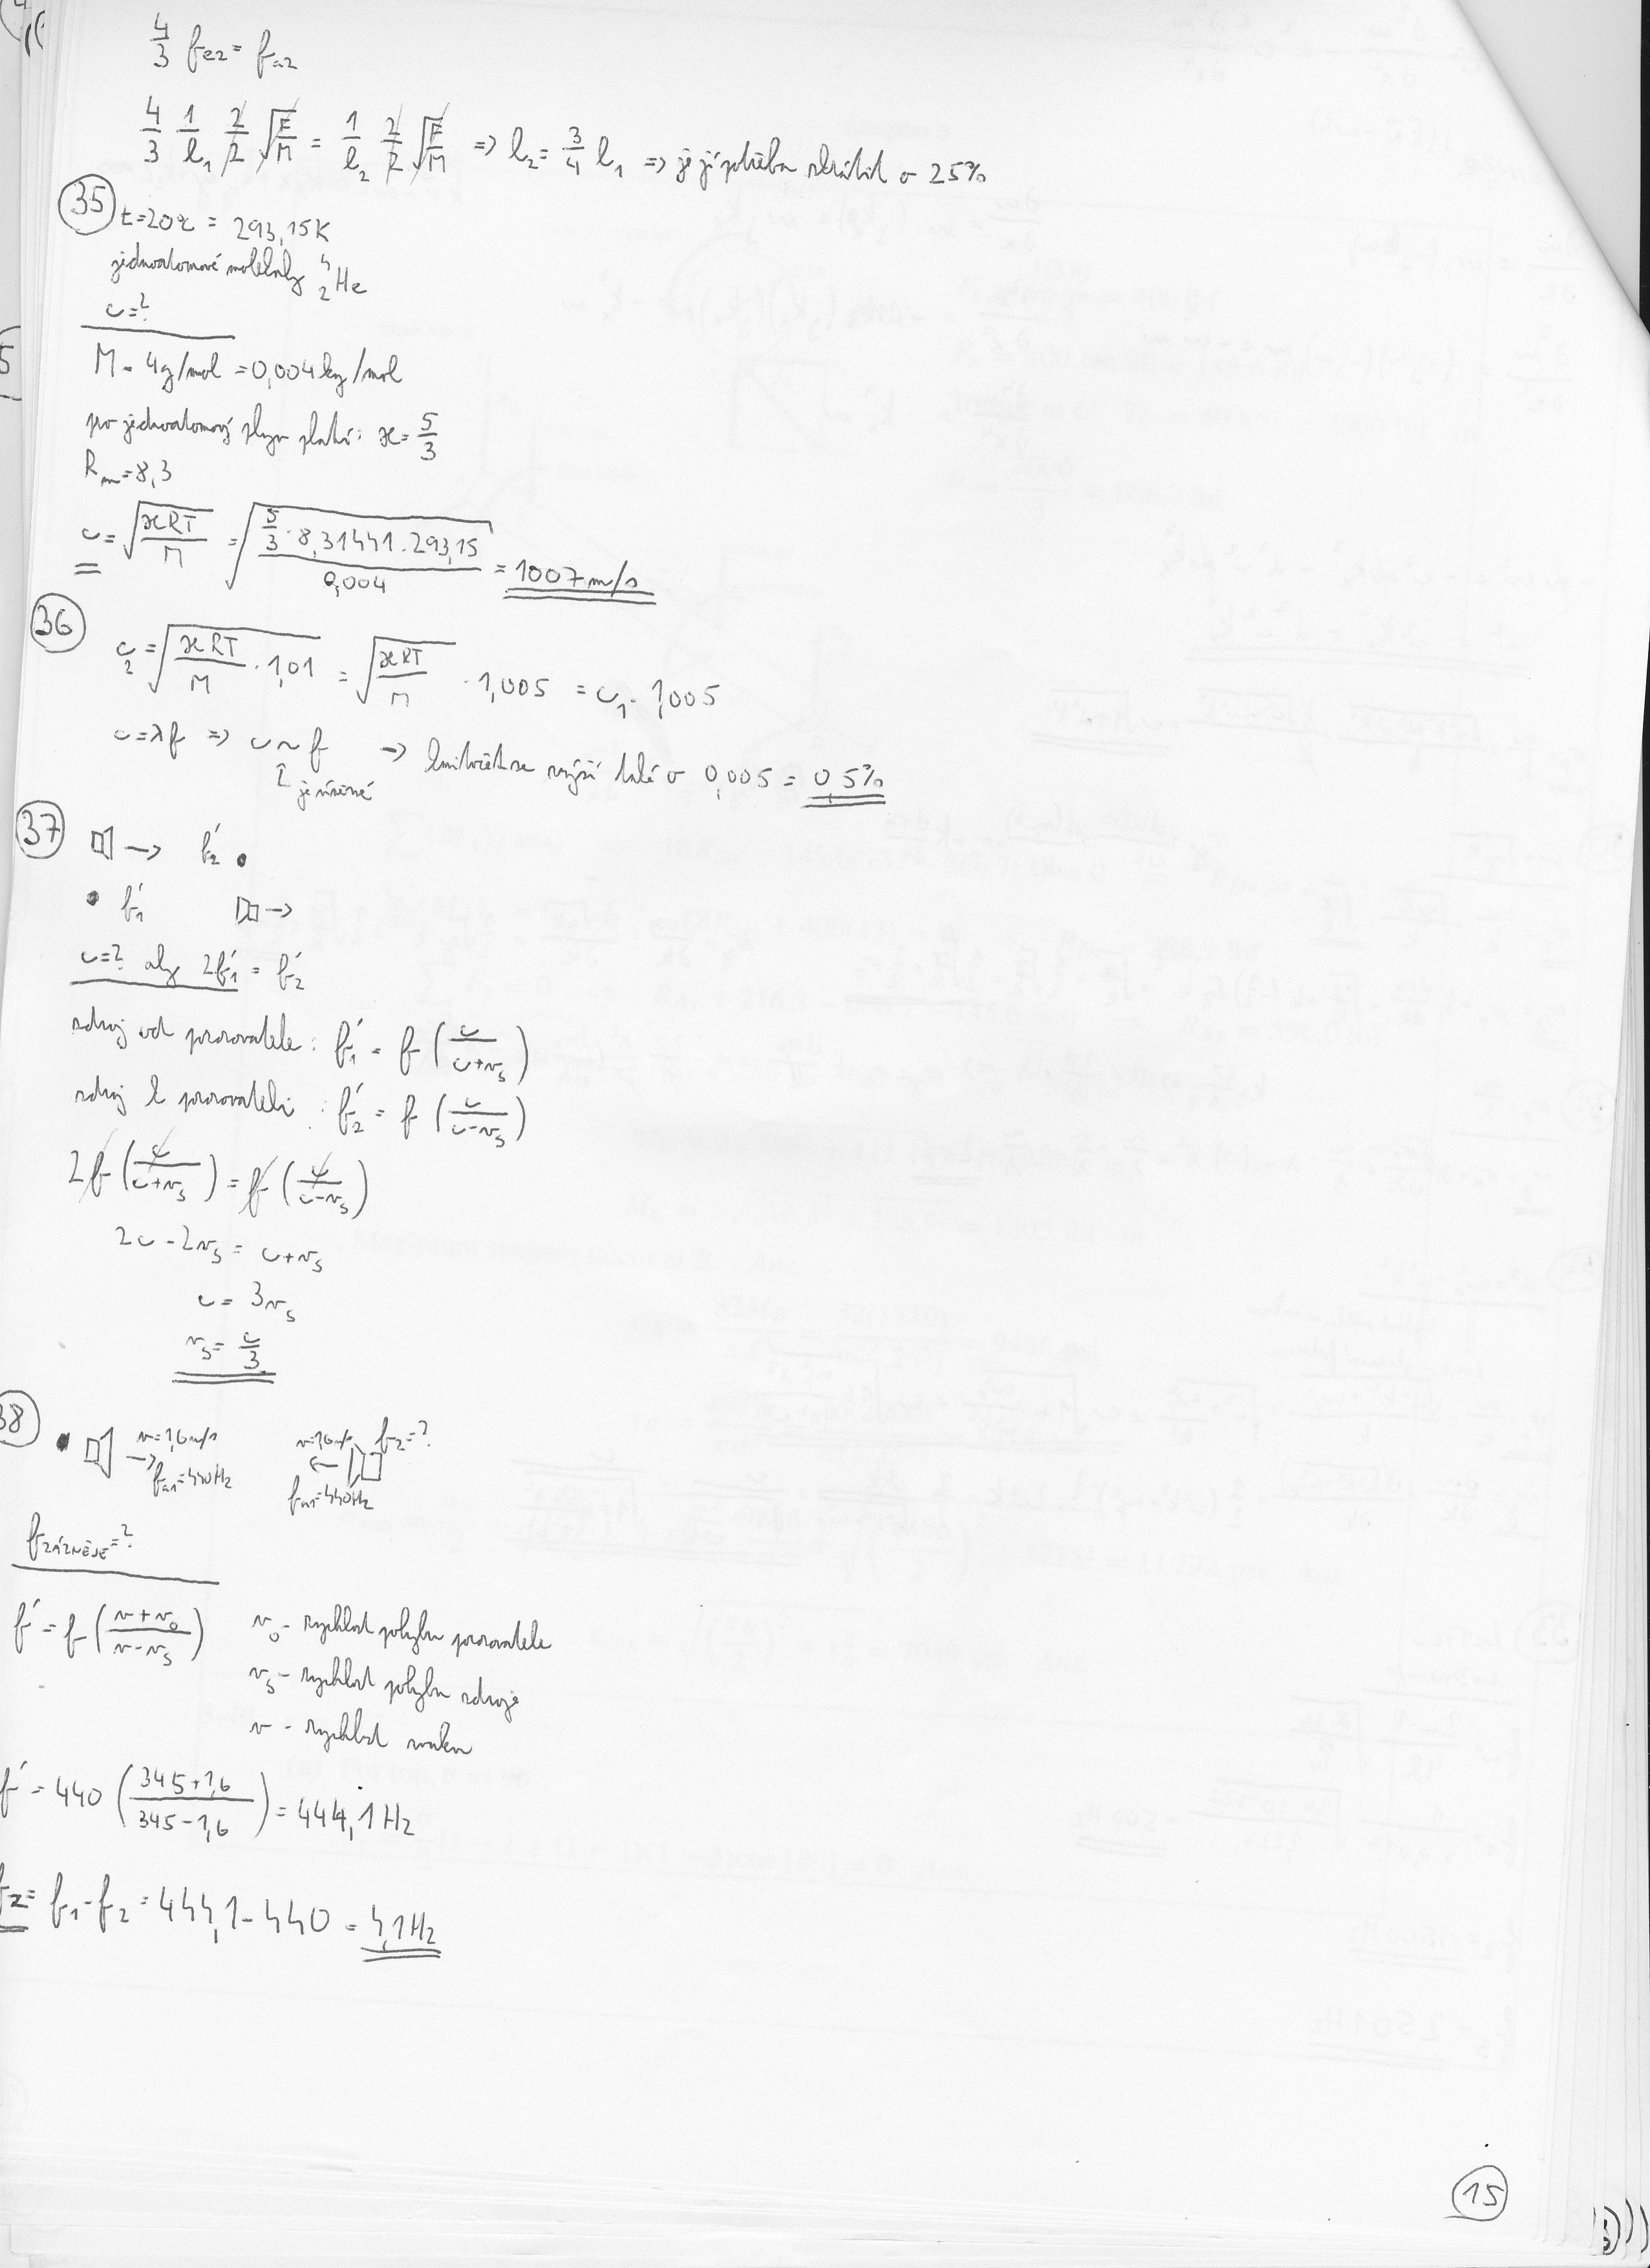 4/3 f_e2 = f_a2
4/3 1/l_1 2/2 √(F/M) = 1/l_2 2/2 √(F/M) => l_2 = 3/4 l_1 => je jí potřeba zkrátit o 25%
35 t=20°C = 293,15K
jednoatomové molekuly ⁴₂He
c=?
M = 4g/mol = 0,004kg/mol
pro jednoatomový plyn platí: ϰ = 5/3
R_m = 8,3
c = √(ϰRT/M) = √(5/3 · 8,31441 · 293,15 / 0,004) = 1007 m/s
36 c_2 = √(ϰRT/M · 1,01) = √(ϰRT/M) · 1,005 = c_1 · 1,005
c = λf => c ~ f -> kmitočet se zvýší také o 0,005 = 0,5%
je úměrné
37 -> f_2' •
• f_1' ->
c=? aby 2f_1' = f_2'
zdroj od pozorovatele: f_1' = f (c/(c+v_s))
zdroj k pozorovateli: f_2' = f (c/(c-v_s))
2f (c/(c+v_s)) = f (c/(c-v_s))
2c - 2v_s = c+v_s
c = 3v_s
v_s = c/3
38 v=1,6m/s v=1,6m/s f_2=?
f_m1=440Hz f_m1=440Hz
f_ZÁZNĚJE=?
f' = f ((v+v_0)/(v-v_s)) v_0 - rychlost pohybu pozorovatele
v_s - rychlost pohybu zdroje
v - rychlost zvuku
f' = 440 ((345+1,6)/(345-1,6)) = 444,1Hz
f_z = f_1 - f_2 = 444,1 - 440 = 4,1Hz
15